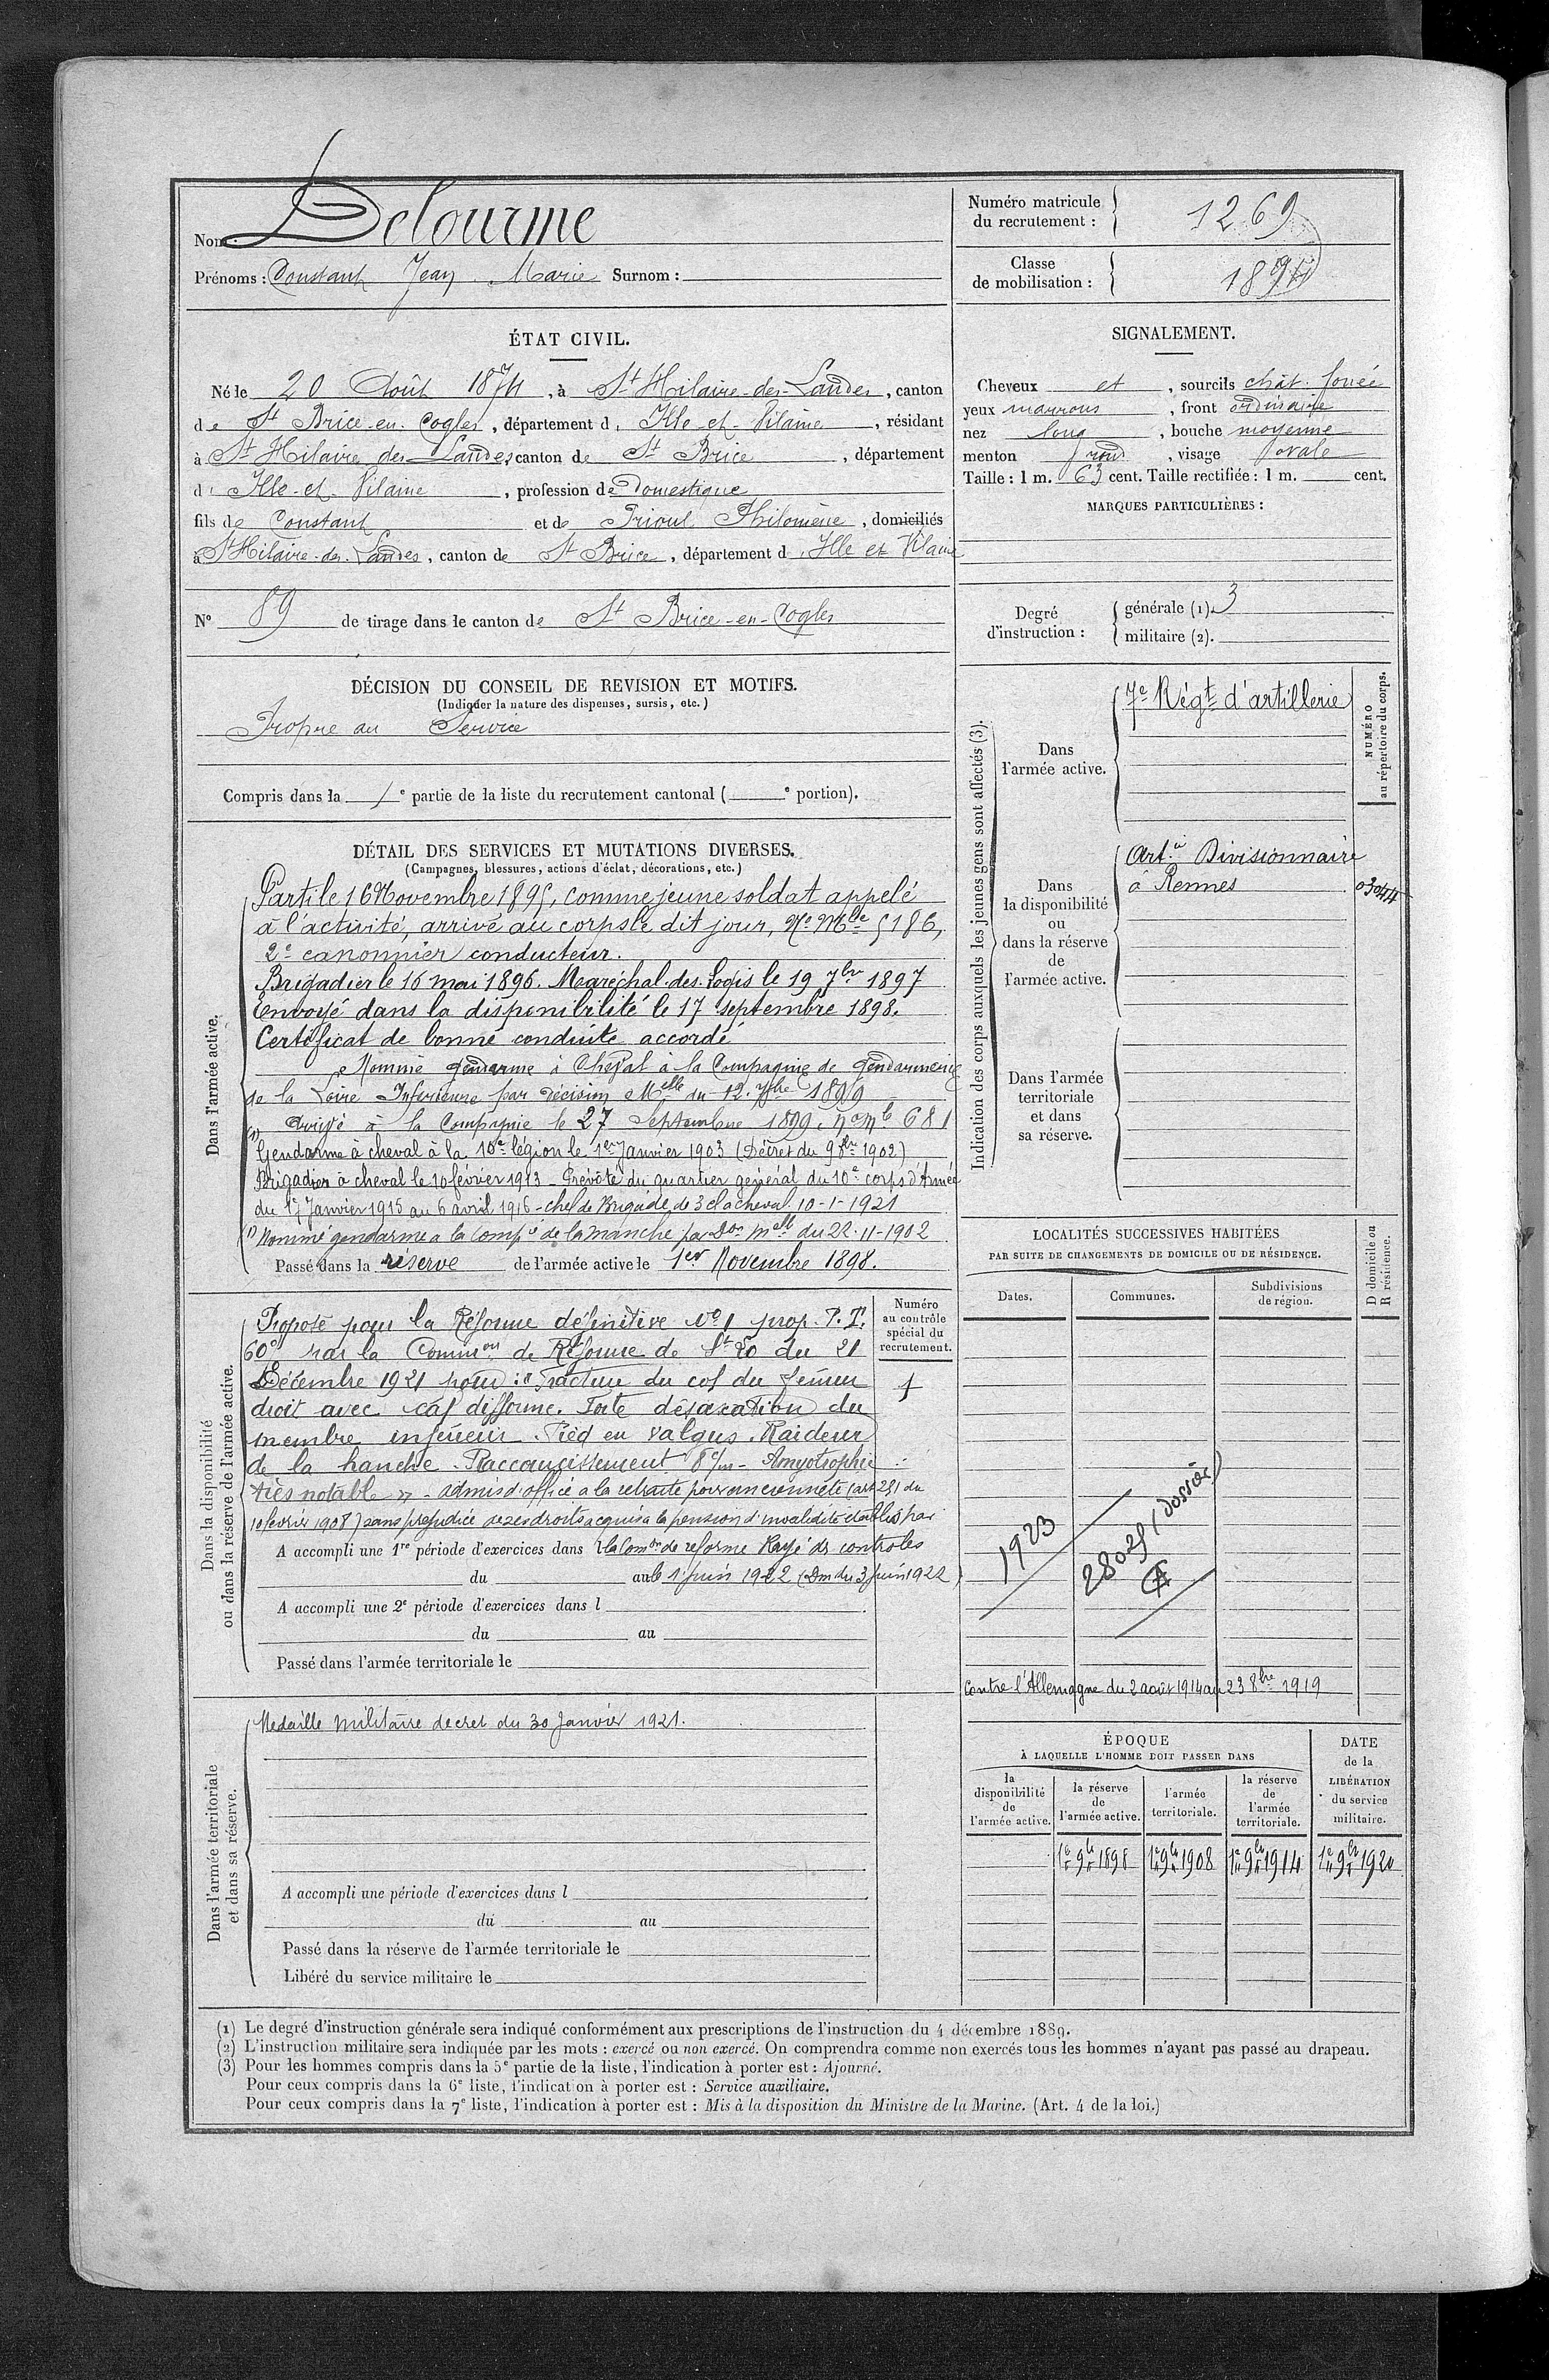 Nom: Delourme
Prénoms : Constant Jean Marie Surnom :
Numéro matricule du recrutement : 1269
Classe de mobilisation : 1894
ÉTAT CIVIL.
Né le 20 Août 1874, à St Hilaire-des-Landes, canton
de St Brice-en-Cogles, département d'Ille-et-Vilaine, résidant
à St Hilaire des Landes, canton de St Brice, département
d'Ille-et-Vilaine, profession de Domestique
fils de Constant et de Prioul Philomène, domiciliés
à St Hilaire-des-Landes, canton de St Brice, département d'Ille et Vilaine
N° 89 de tirage dans le canton de St Brice-en-Cogles
SIGNALEMENT.
Cheveux et, sourcils chât. foncé
yeux marrons, front ordinaire
nez long, bouche moyenne
menton rond, visage ovale
Taille : 1 m. 63 cent. Taille rectifiée : 1 m. cent.
MARQUES PARTICULIÈRES :
Degré d'instruction :
générale (1). 3
militaire (2).
DÉCISION DU CONSEIL DE REVISION ET MOTIFS.
(Indiquer la nature des dispenses, sursis, etc.)
Propre au Service
Compris dans la 1e partie de la liste du recrutement cantonal ( e portion).
DÉTAIL DES SERVICES ET MUTATIONS DIVERSES.
(Campagnes, blessures, actions d'éclat, décorations, etc.)
Dans l'armée active.
Parti le 16 Novembre 1895, comme jeune soldat appelé
à l'activité, arrivé au corps le dit jour, No Mle 5186,
2e canonnier conducteur.
Brigadier le 16 mai 1896. Maréchal-des-logis le 19 7bre 1897
Envoyé dans la disponibilité le 17 septembre 1898.
Certificat de bonne conduite accordé
Nommé gendarme à Cheval à la Compagnie de gendarmerie
de la Loire Inférieure par Décision Melle du 12 7bre 1899
arrivé à la Compagnie le 27 Septembre 1899. No Mle 681
(1) Gendarme à cheval à la 10e légion le 1er Janvier 1903 (Décret du 9 8bre 1902)
Brigadier à cheval le 10 février 1913 - Prévôté du quartier général du 10e corps d'Armée
du 1er Janvier 1915 au 6 avril 1916 - chef de Brigade de 3e cl à cheval 10-1-1921
(1) Nommé gendarme a la Compie de la Manche par Don Melle du 22-11-1902
Passé dans la réserve de l'armée active le 1er Novembre 1898.
Indication des corps auxquels les jeunes gens sont affectés (3).
NUMÉRO au répertoire du corps.
Dans l'armée active.
7e Régt d'artillerie
Dans la disponibilité ou dans la réserve de l'armée active.
Art.ie Divisionnaire
à Rennes
03044
Dans l'armée territoriale et dans sa réserve.
LOCALITÉS SUCCESSIVES HABITÉES
PAR SUITE DE CHANGEMENTS DE DOMICILE OU DE RÉSIDENCE.
Dates. Communes. Subdivisions de région. D domicile ou R résidence.
1923
28025 (dossier)
Contre l'Allemagne du 2 août 1914 au 23 8bre 1919
Dans la disponibilité ou dans la réserve de l'armée active.
Numéro au contrôle spécial du recrutement.
1
Proposé pour la Réforme définitive No 1 prop. P. P.
60% par la Common de Réforme de St Lo du 21
Décembre 1921 pour : "Fracture du col du fémur
droit avec cal difforme. Forte désaxation du
membre inférieur. Pied en valgus. Raideur
de la hanche. Raccourcissement 8c/m - Amyotrophie
très notable" - admis d'office a la retraite pour ancienneté (art 251 du
10 février 1908) sans préjudice de ses droits acquis à la pension d'invalidité établis par
A accompli une 1re période d'exercices dans l la Comon de réforme Rayé des contrôles
du au le 1 juin 1922 (Dm du 3 juin 1922)
A accompli une 2e période d'exercices dans l
du au
Passé dans l'armée territoriale le
Dans l'armée territoriale et dans sa réserve.
Medaille militaire decret du 30 Janvier 1921.
A accompli une période d'exercices dans l
du au
Passé dans la réserve de l'armée territoriale le
Libéré du service militaire le
ÉPOQUE
À LAQUELLE L'HOMME DOIT PASSER DANS
la disponibilité de l'armée active. la réserve de l'armée active. l'armée territoriale. la réserve de l'armée territoriale. DATE de la LIBÉRATION du service militaire.
1er 9bre 1898 1er 9bre 1908 1er 9bre 1914 1er 9bre 1920
(1) Le degré d'instruction générale sera indiqué conformément aux prescriptions de l'instruction du 4 décembre 1889.
(2) L'instruction militaire sera indiquée par les mots : exercé ou non exercé. On comprendra comme non exercés tous les hommes n'ayant pas passé au drapeau.
(3) Pour les hommes compris dans la 5e partie de la liste, l'indication à porter est : Ajourné.
Pour ceux compris dans la 6e liste, l'indication à porter est : Service auxiliaire.
Pour ceux compris dans la 7e liste, l'indication à porter est : Mis à la disposition du Ministre de la Marine. (Art. 4 de la loi.)